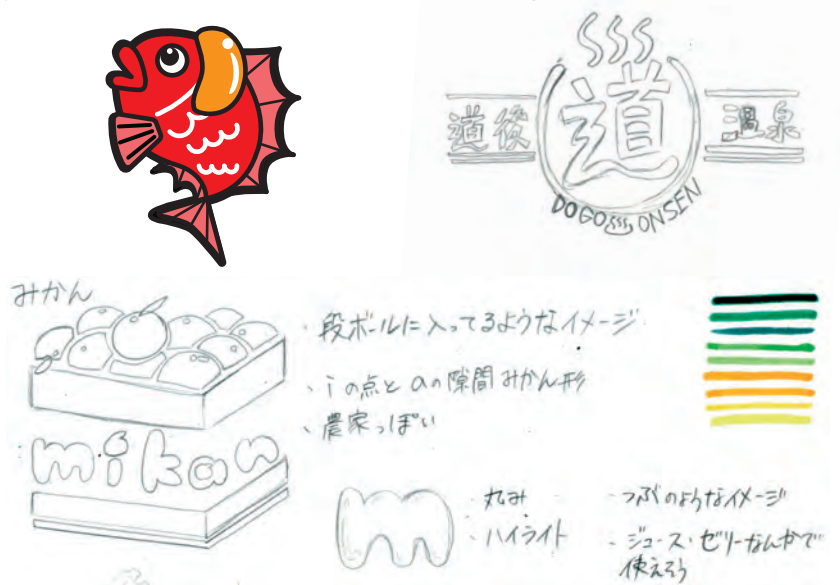 道後
道
温泉
DOGO ONSEN
みかん
・段ボールに入ってるようなイメージ
・iの点とaの隙間みかん形
・農家っぽい
mikan
m
・丸み
・ハイライト
・つぶのようなイメージ
・ジュース・ゼリーなんかで
使えそう